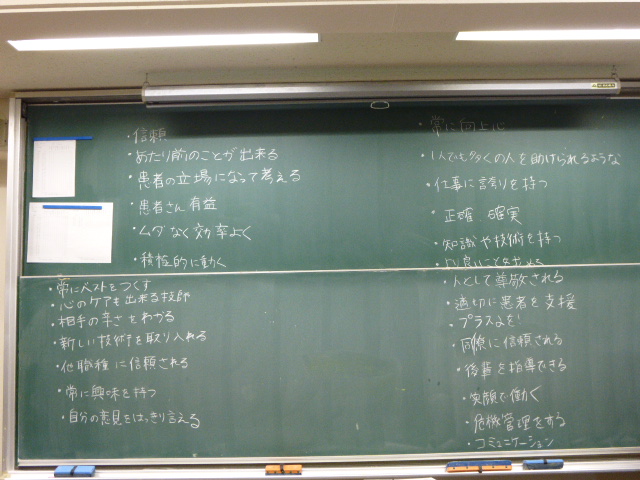 ・信頼
・あたり前のことが出来る
・患者の立場になって考える
・患者さん有益
・ムダなく効率よく
・積極的に動く
・常にベストをつくす
・心のケアも出来る技師
・相手の辛さをわかる
・新しい技術を取り入れる
・他職種に信頼される
・常に興味を持つ
・自分の意見をはっきり言える
・常に向上心
・1人でも多くの人を助けられるような
・仕事に誇りを持つ
正確 確実
・知識や技術を持つ
良いことを
・人として尊敬される
・適切に患者を支援
・プラスαを!
・同僚に信頼される
・後輩を指導できる
・笑顔で働く
・危機管理をする
・コミュニケーション